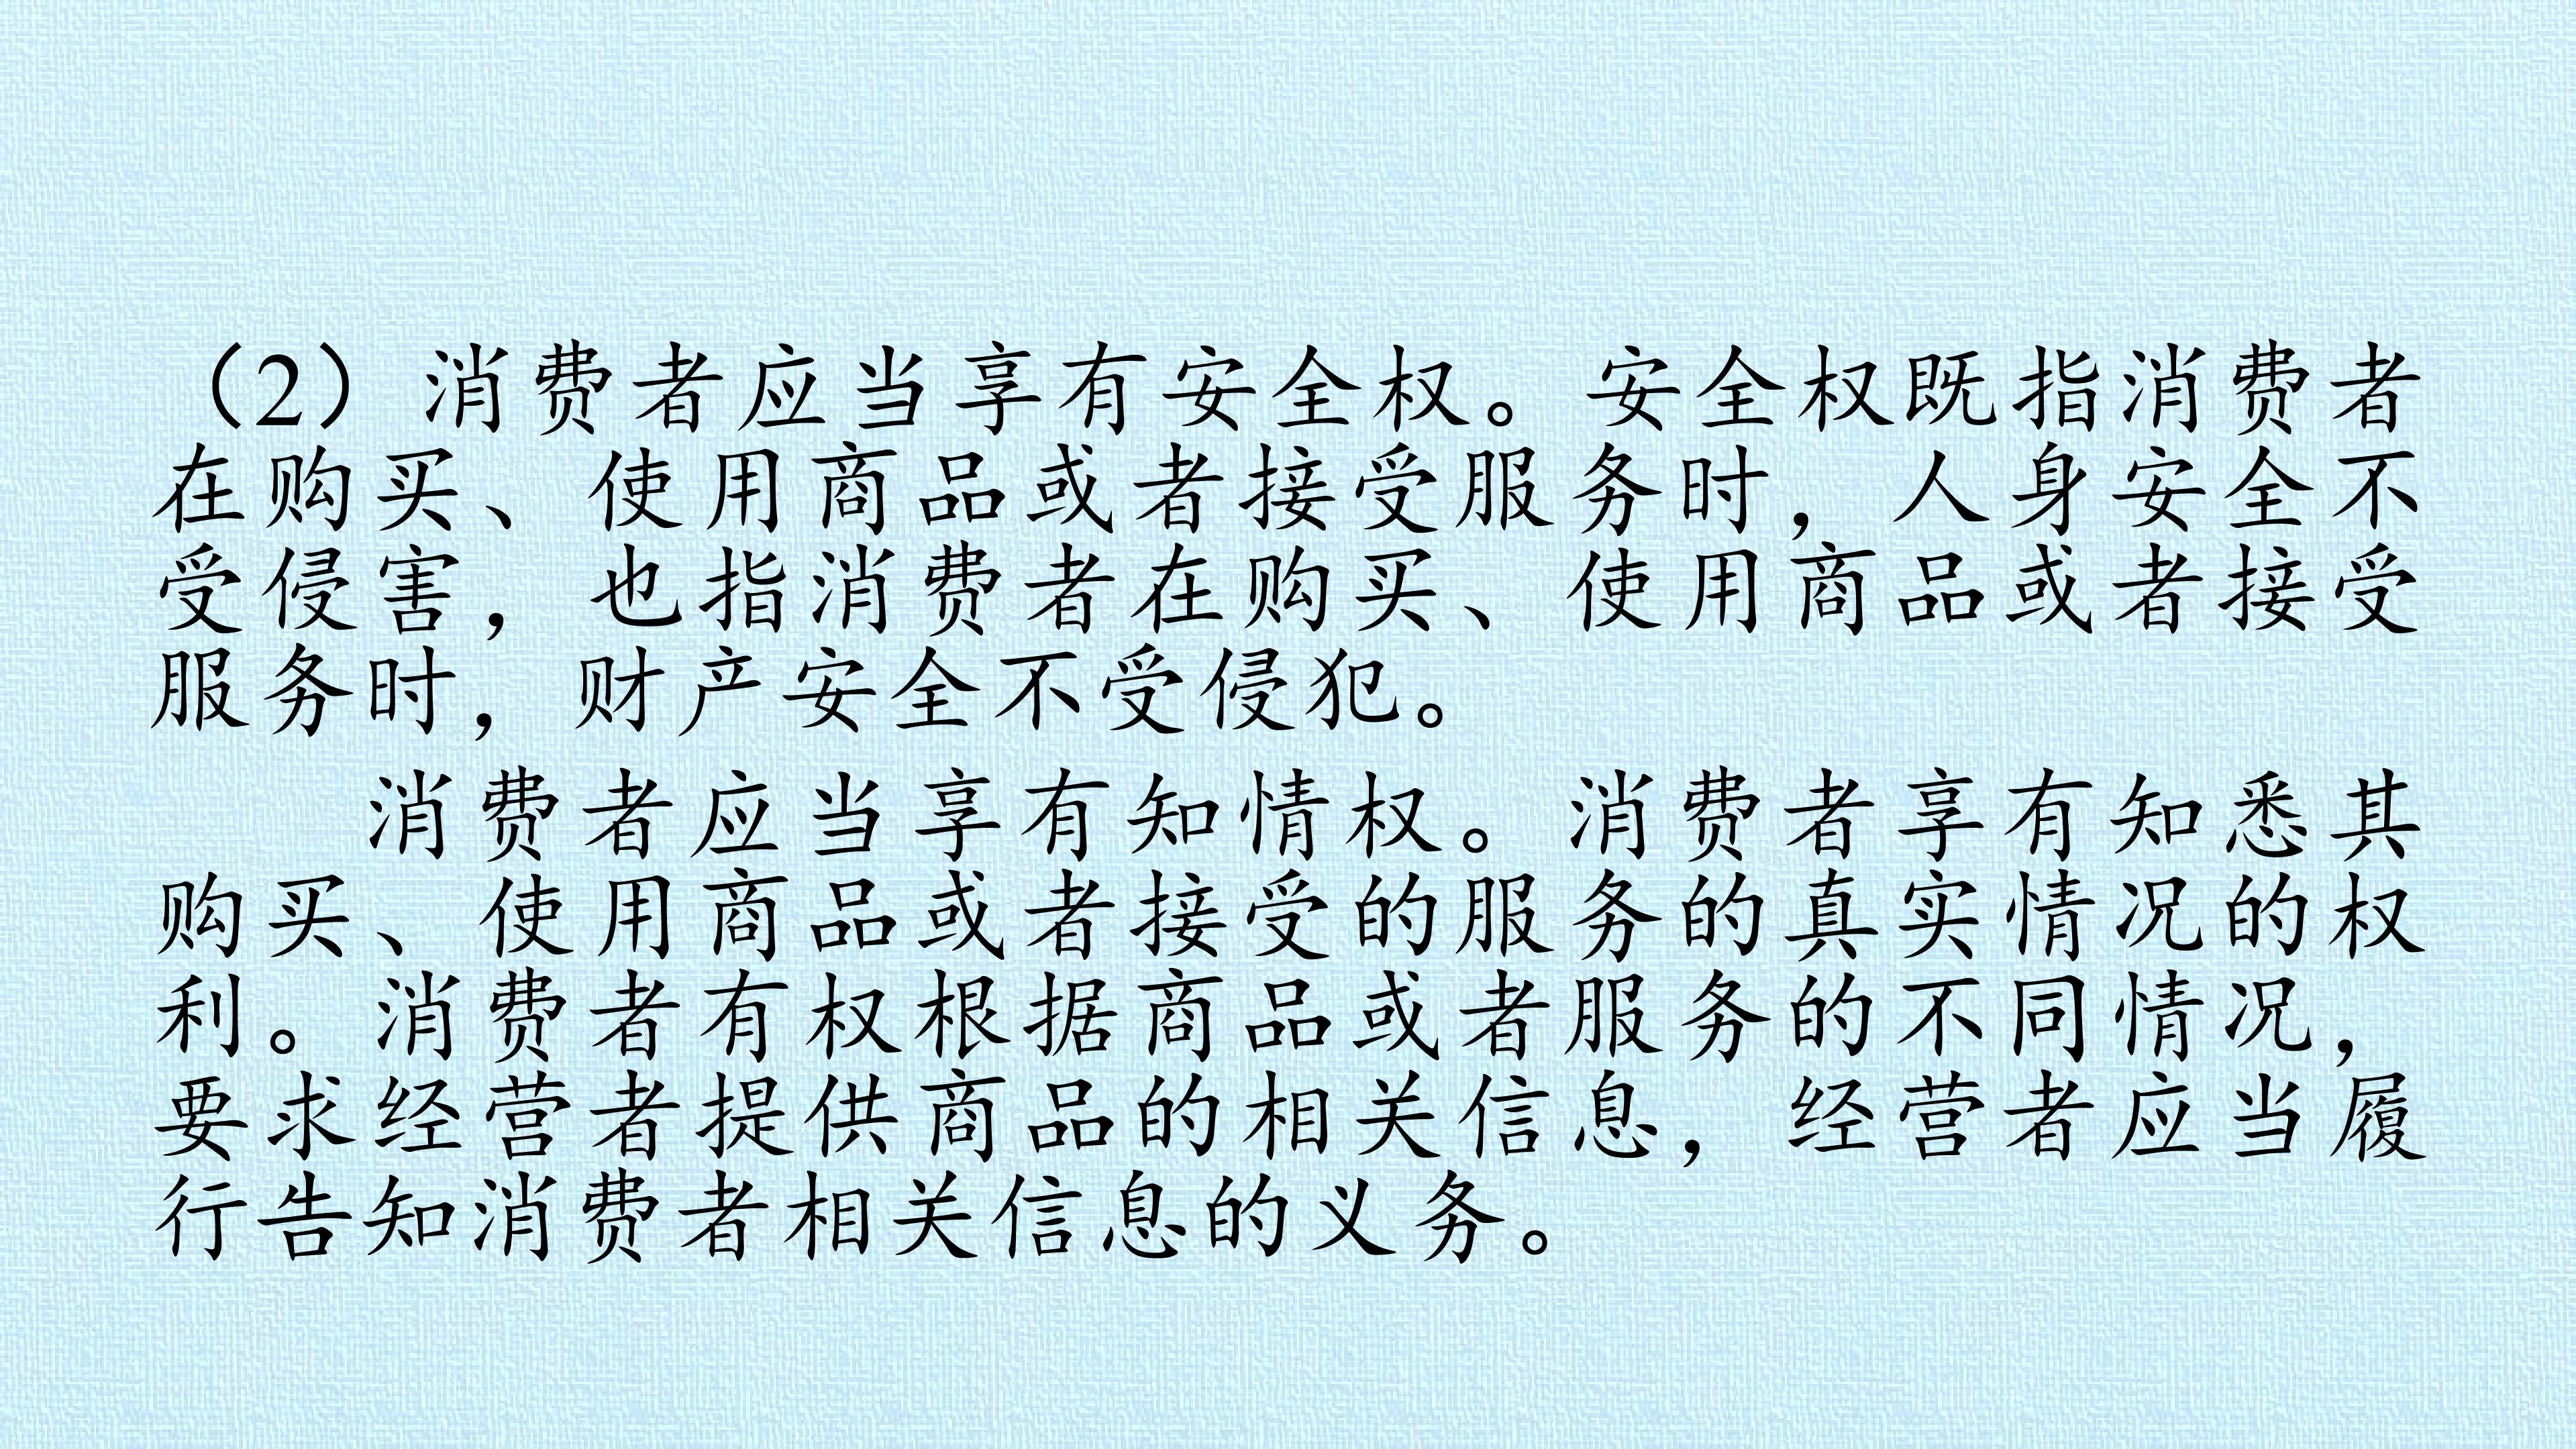 （2）消费者应当享有安全权。安全权既指消费者
在购买、使用商品或者接受服务时，人身安全不
受侵害，也指消费者在购买、使用商品或者接受
服务时，财产安全不受侵犯。
消费者应当享有知情权。消费者享有知悉其
购买、使用商品或者接受的服务的真实情况的权
利。消费者有权根据商品或者服务的不同情况，
要求经营者提供商品的相关信息，经营者应当履
行告知消费者相关信息的义务。